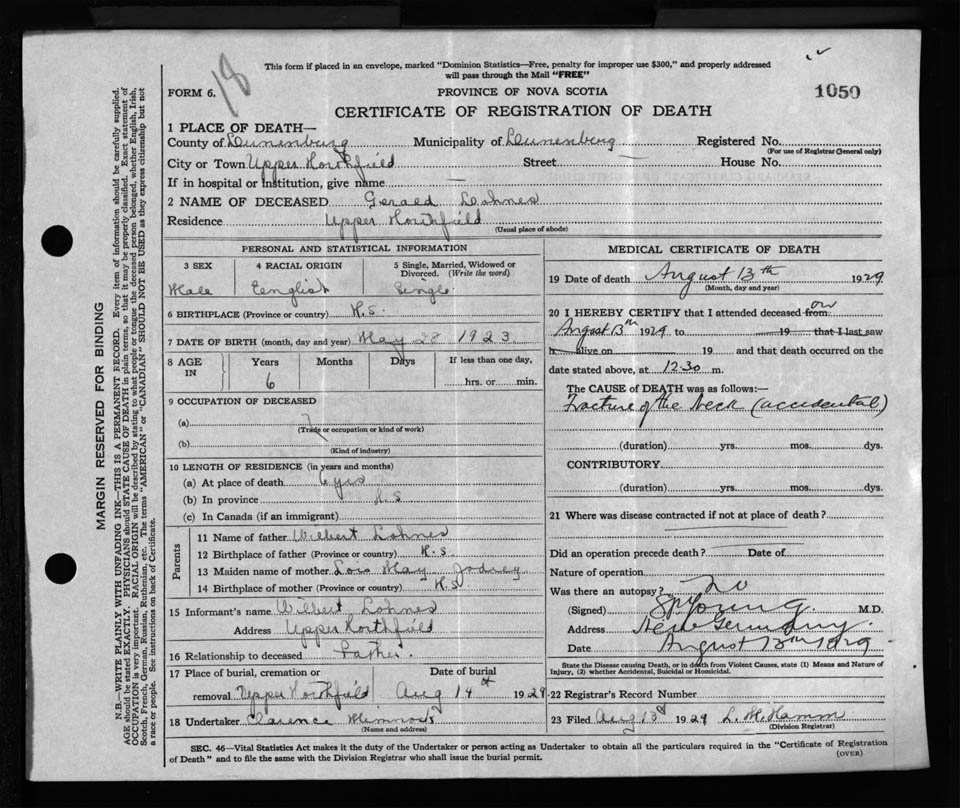 18
This form if placed in an envelope, marked "Dominion Statistics—Free, penalty for improper use $300," and properly addressed
will pass through the Mail "FREE"
FORM 6.
PROVINCE OF NOVA SCOTIA
1050
CERTIFICATE OF REGISTRATION OF DEATH
1 PLACE OF DEATH—
County of Lunenburg Municipality of Lunenburg Registered No.
(For use of Registrar General only)
City or Town Upper Northfield Street — House No.
If in hospital or Institution, give name —
2 NAME OF DECEASED Gerald Lohnes
Residence Upper Northfield
(Usual place of abode)
PERSONAL AND STATISTICAL INFORMATION
3 SEX 4 RACIAL ORIGIN 5 Single, Married, Widowed or
Divorced. (Write the word)
Male English Single
6 BIRTHPLACE (Province or country) N.S.
7 DATE OF BIRTH (month, day and year) May 28 1923
8 AGE IN Years Months Days If less than one day,
6 hrs. or min.
9 OCCUPATION OF DECEASED
(a)
(Trade or occupation or kind of work)
(b)
(Kind of industry)
10 LENGTH OF RESIDENCE (in years and months)
(a) At place of death 6 yrs
(b) In province N.S
(c) In Canada (if an immigrant)
Parents
11 Name of father Wilbert Lohnes
12 Birthplace of father (Province or country) N.S.
13 Maiden name of mother Lois May Jodrey
14 Birthplace of mother (Province or country) N.S
15 Informant's name Wilbert Lohnes
Address Upper Northfield
16 Relationship to deceased Father.
17 Place of burial, cremation or Date of burial
removal Upper Northfield Aug 14 1929
18 Undertaker Clarence
(Name and address)
MEDICAL CERTIFICATE OF DEATH
19 Date of death August 13th 1929
(Month, day and year)
20 I HEREBY CERTIFY that I attended deceased from on
August 13th 1929 to 19 that I last saw
h alive on 19 and that death occurred on the
date stated above, at 12.30 m.
The CAUSE of DEATH was as follows:—
Fracture of the Neck (accidental)
(duration) yrs. mos. dys.
CONTRIBUTORY
(duration) yrs. mos. dys.
21 Where was disease contracted if not at place of death?
Did an operation precede death? Date of
Nature of operation
Was there an autopsy? No
(Signed) Young M.D.
Address New Germany
Date August 13th 1929
State the Disease causing Death, or in death from Violent Causes, state (1) Means and Nature of
Injury, (2) whether Accidental, Suicidal or Homicidal.
22 Registrar's Record Number
23 Filed Aug 13 1929 L. M. Hamm
(Division Registrar)
SEC. 46—Vital Statistics Act makes it the duty of the Undertaker or person acting as Undertaker to obtain all the particulars required in the "Certificate of Registration
of Death" and to file the same with the Division Registrar who shall issue the burial permit.
(OVER)
MARGIN RESERVED FOR BINDING
N.B.—WRITE PLAINLY WITH UNFADING INK—THIS IS A PERMANENT RECORD. Every item of information should be carefully supplied.
AGE should be stated EXACTLY. PHYSICIANS should STATE CAUSE OF DEATH in plain terms, so that it may be properly classified. Exact statement of
OCCUPATION is very important. RACIAL ORIGIN will be described by stating to what people or tongue the deceased person belonged, whether English, Irish,
Scotch, French, German, Russian, Ruthenian, etc. The terms "AMERICAN" or "CANADIAN" SHOULD NOT BE USED as they express citizenship but not
a race or people. See instructions on back of Certificate.